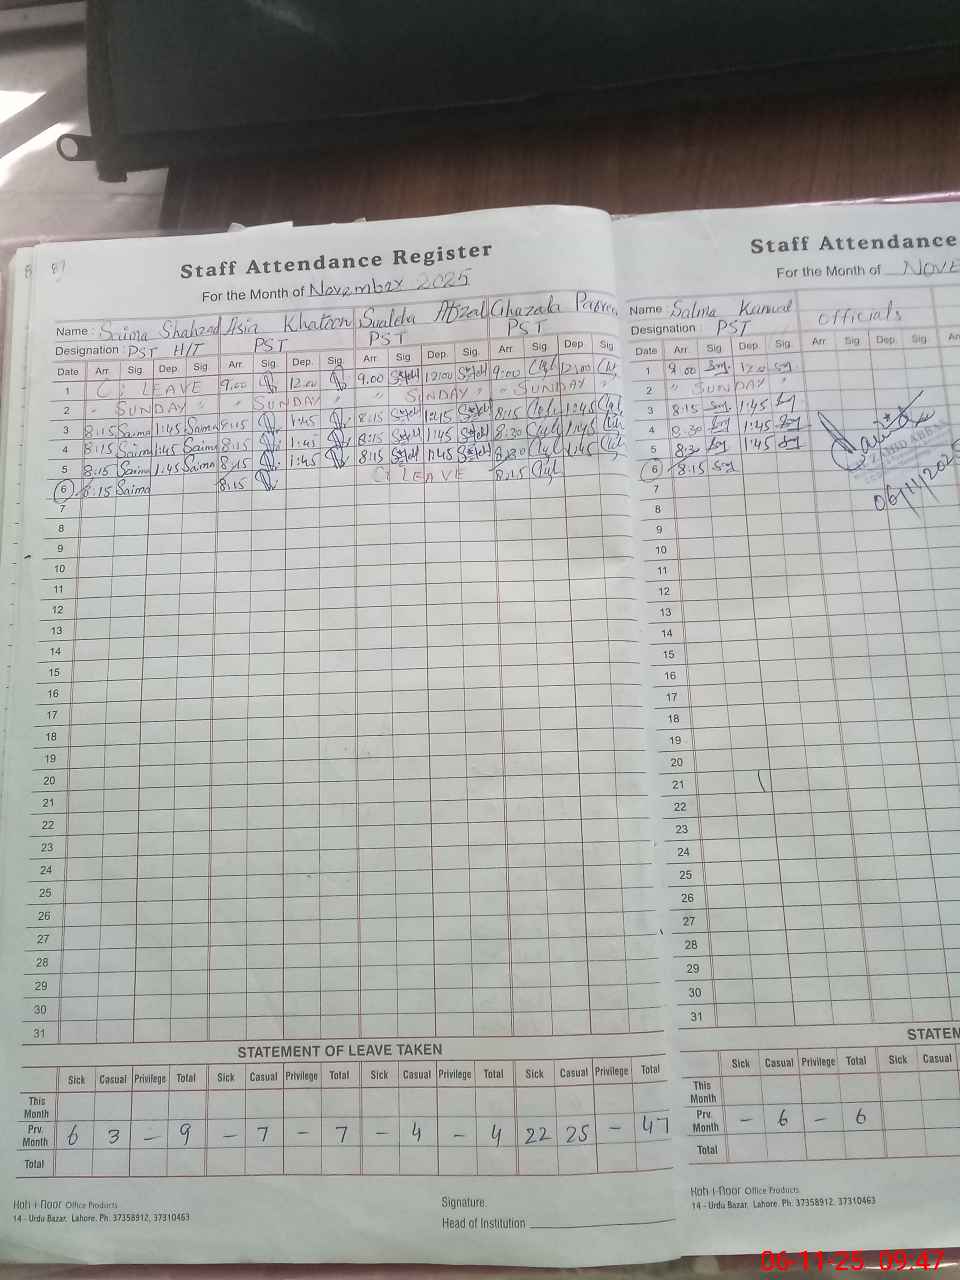 87
Staff Attendance Register
For the Month of November 2025
Name : Saima Shahzad Asia Khatoon Sualeha Afzal Ghazala Parveen
Designation : PST H/T PST PST PST
Date Arr. Sig. Dep. Sig. Arr. Sig. Dep. Sig. Arr. Sig. Dep. Sig. Arr. Sig. Dep. Sig.
1 C; LEAVE 9.00 12.00 9.00 12:00 9:00 12:00
2 " SUNDAY " " SUNDAY " " SUNDAY " " SUNDAY "
3 8:15 Saima 1:45 Saima 8:15 1:45 8:15 1:45 8:15 1:45
4 8:15 Saima 1:45 Saima 8:15 1:45 8:15 1:45 8:30 1:45
5 8:15 Saima 1:45 Saima 8:15 1:45 8:15 1:45 8:30 1:45
6 8:15 Saima 8:15 C; LEAVE 8:15
7
8
9
10
11
12
13
14
15
16
17
18
19
20
21
22
23
24
25
26
27
28
29
30
31
STATEMENT OF LEAVE TAKEN
Sick Casual Privilege Total Sick Casual Privilege Total Sick Casual Privilege Total Sick Casual Privilege Total
This Month
Prv. Month 6 3 - 9 - 7 - 7 - 4 - 4 22 25 - 47
Total
Koh-i-noor Office Products
14 - Urdu Bazar, Lahore. Ph. 37358912, 37310463
Signature
Head of Institution
Staff Attendance
For the Month of NOVE
Name : Salma Kanwal officials
Designation : PST
Date Arr. Sig. Dep. Sig. Arr. Sig. Dep. Sig. Arr
1 9.00 12.00
2 " SUNDAY "
3 8:15 1:45
4 8:30 1:45
5 8:30 1:45
6 8:15
06/11/2025
7
8
9
10
11
12
13
14
15
16
17
18
19
20
21
22
23
24
25
26
27
28
29
30
31
STATEM
Sick Casual Privilege Total Sick Casual
This Month
Prv. Month - 6 - 6
Total
Koh-i-noor Office Products
14 - Urdu Bazar, Lahore. Ph. 37358912, 37310463
06-11-25 09:47